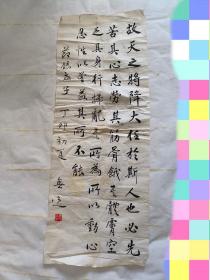 故天之將降大任於斯人也必先
苦其心志勞其筋骨餓其體膚空
乏其身行拂亂其所為所以動心
忍性以曾益其所不能
丁卯初夏